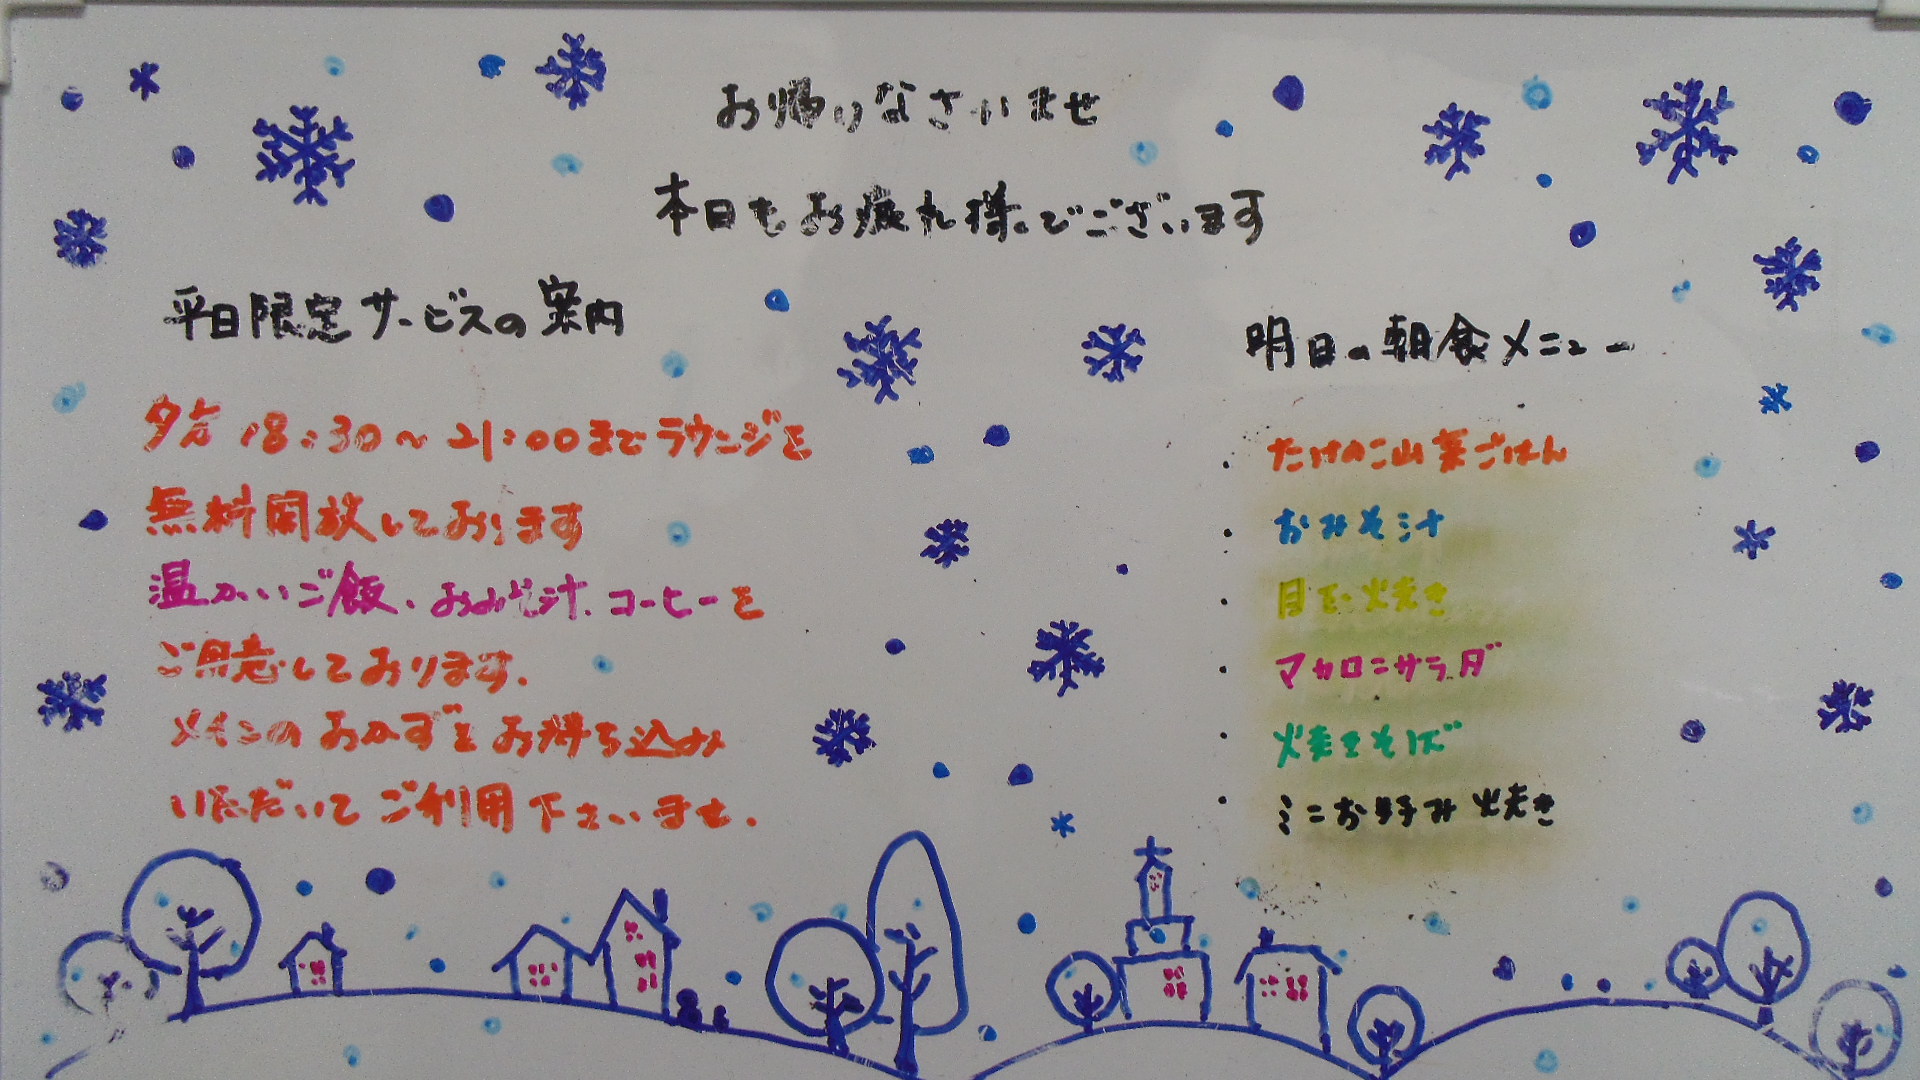 お帰りなさいませ
本日もお疲れ様でございます
平日限定サービスの案内
夕方 18:30～21:00までラウンジを
無料開放しております
温かいご飯、おみそ汁、コーヒーを
ご用意しております。
メインのおかずをお持ち込み
いただいてご利用下さいませ。
明日の朝食メニュー
・たけのこ山菜ごはん
・おみそ汁
・目玉焼き
・マカロニサラダ
・焼きそば
・ミニお好み焼き